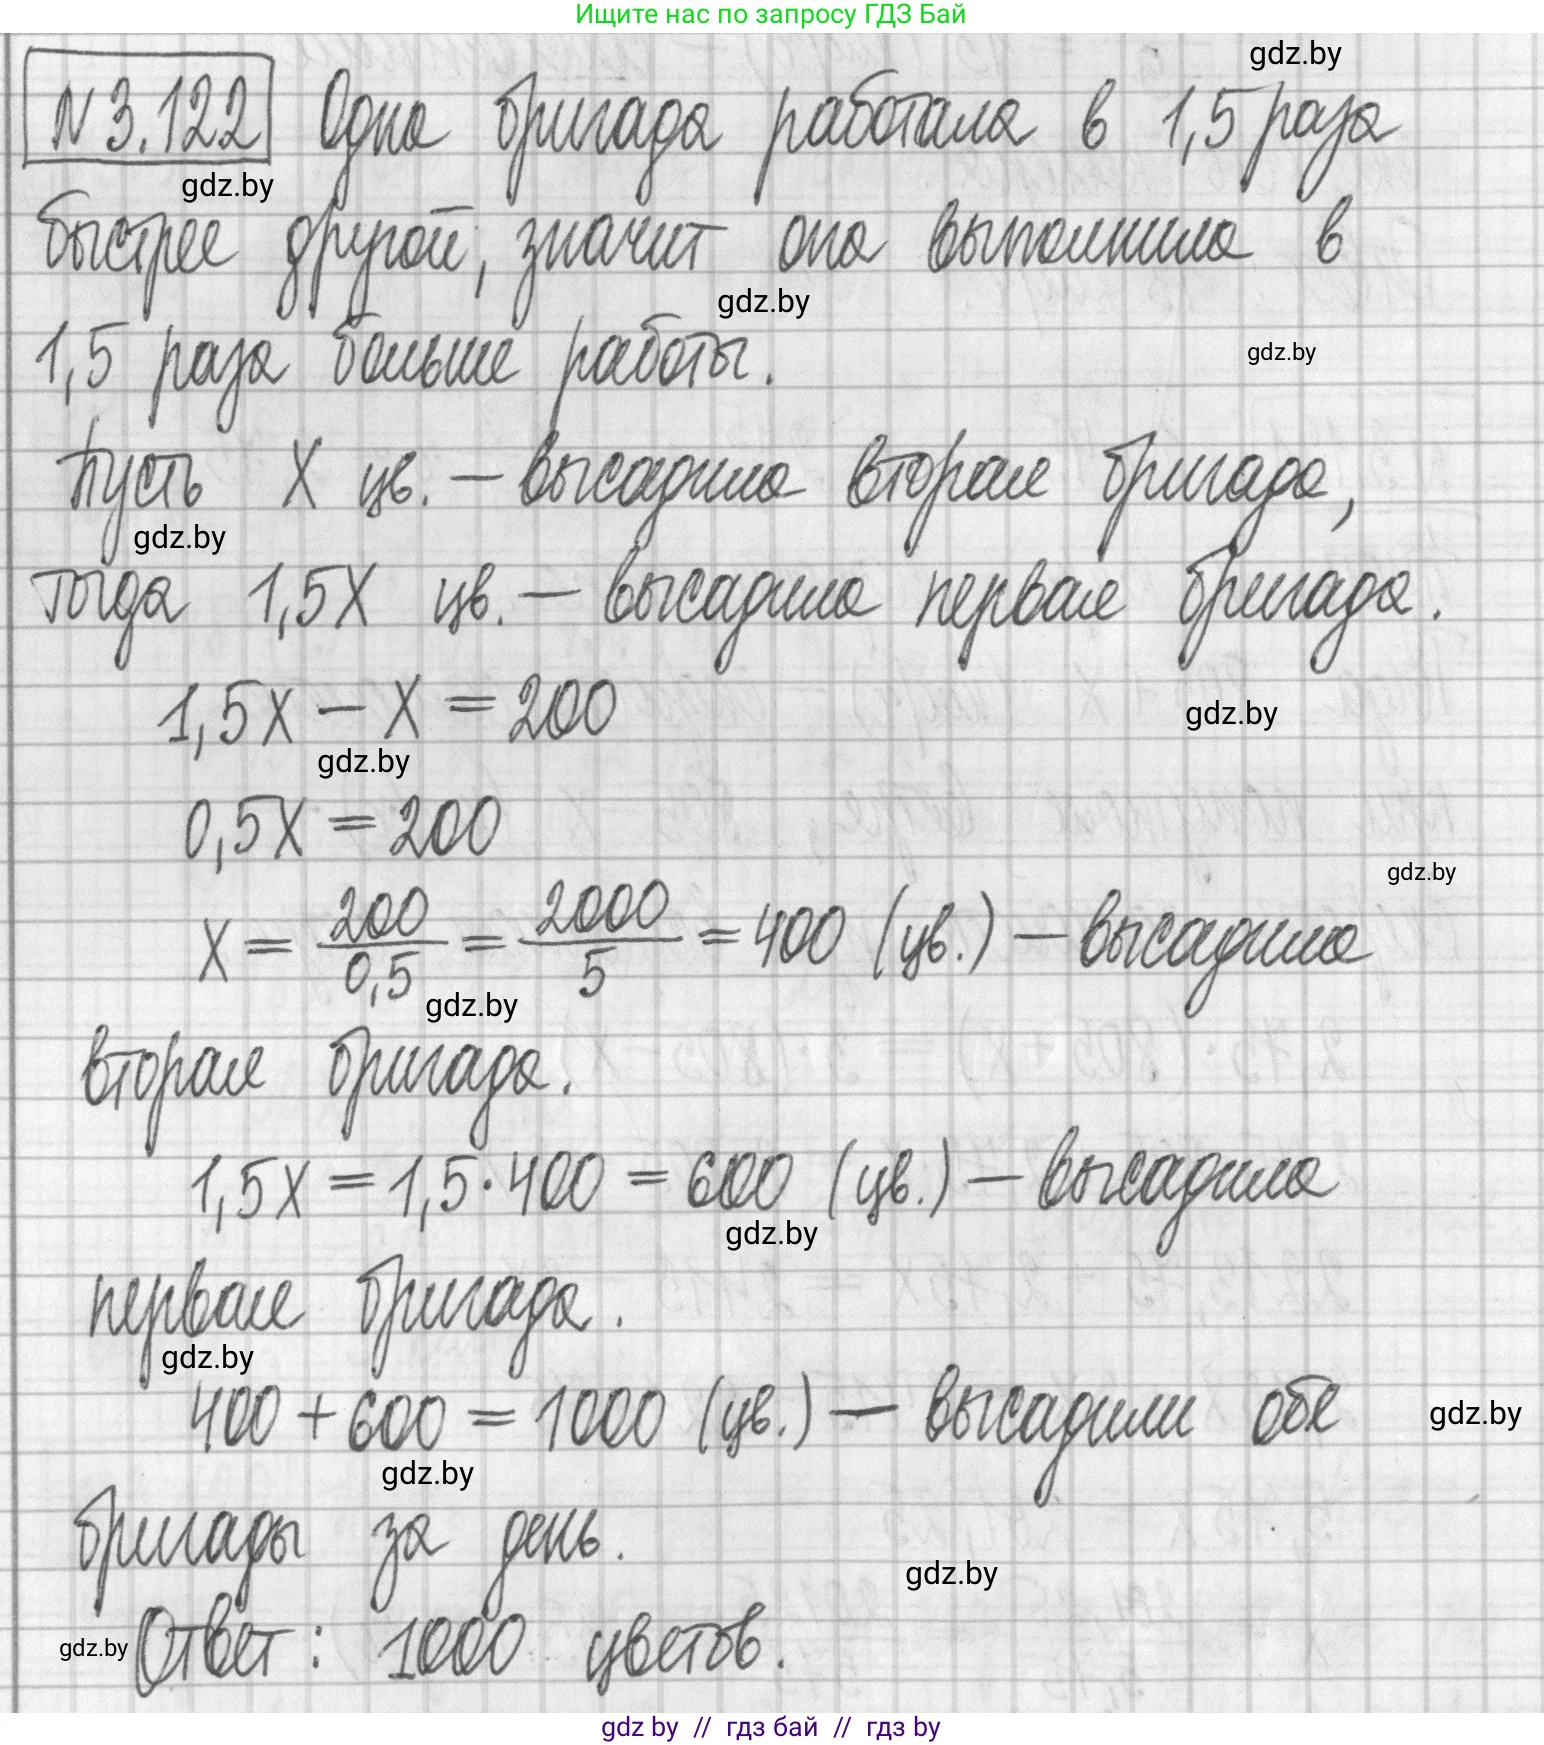 Ищите нас по запросу ГДЗ Бай
gdz.by
N 3.122 Одна бригада работала в 1,5 раза
gdz.by
быстрее другой, значит она выполнила в
gdz.by
1,5 раза больше работы.
gdz.by
Пусть X цв. – высадила вторая бригада,
gdz.by
тогда 1,5X цв. – высадила первая бригада.
1,5X – X = 200
gdz.by
gdz.by
0,5X = 200
gdz.by
X = 200/0,5 = 2000/5 = 400 (цв.) – высадила
gdz.by
вторая бригада.
1,5X = 1,5·400 = 600 (цв.) – высадила
gdz.by
первая бригада.
gdz.by
400 + 600 = 1000 (цв.) – высадили обе
gdz.by
gdz.by
бригады за день.
gdz.by
gdz.by
Ответ: 1000 цветов.
gdz by // гдз бай // гдз by